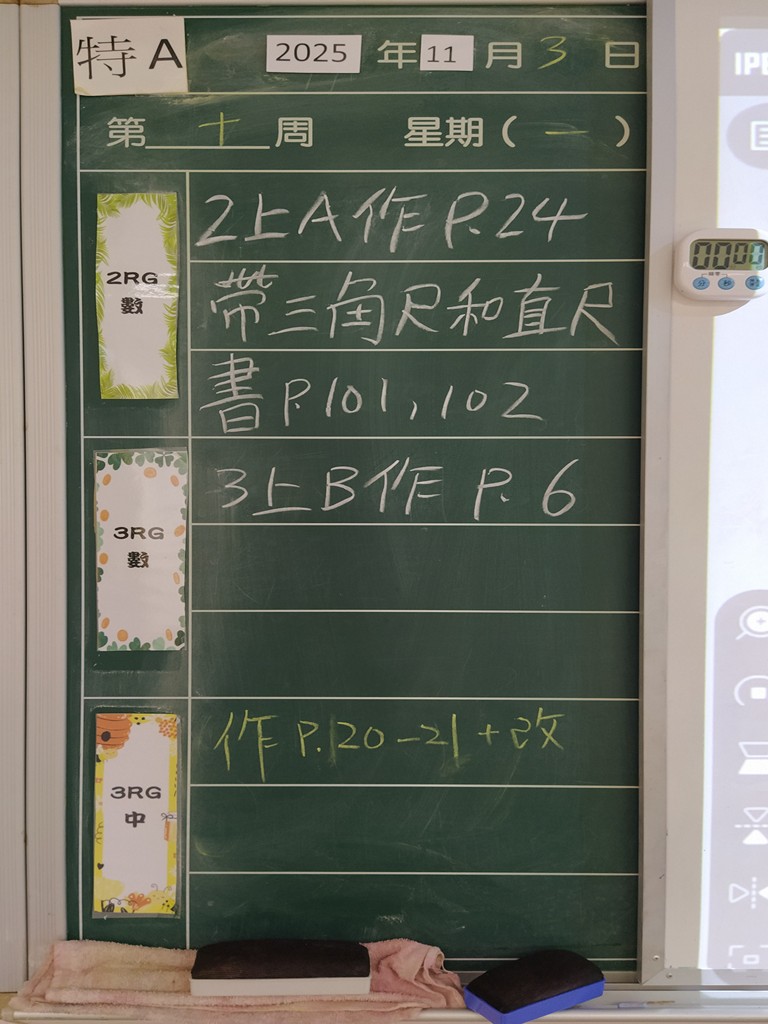 特 A
2025 年 11 月 3 日
第 十 周 星期 ( 一 )
2RG
數
2上A作 P.24
帶三角尺和直尺
書 P.101, 102
3RG
數
3上B作 P.6
3RG
中
作 P.120-21 + 改
00:00
分 秒
IPE